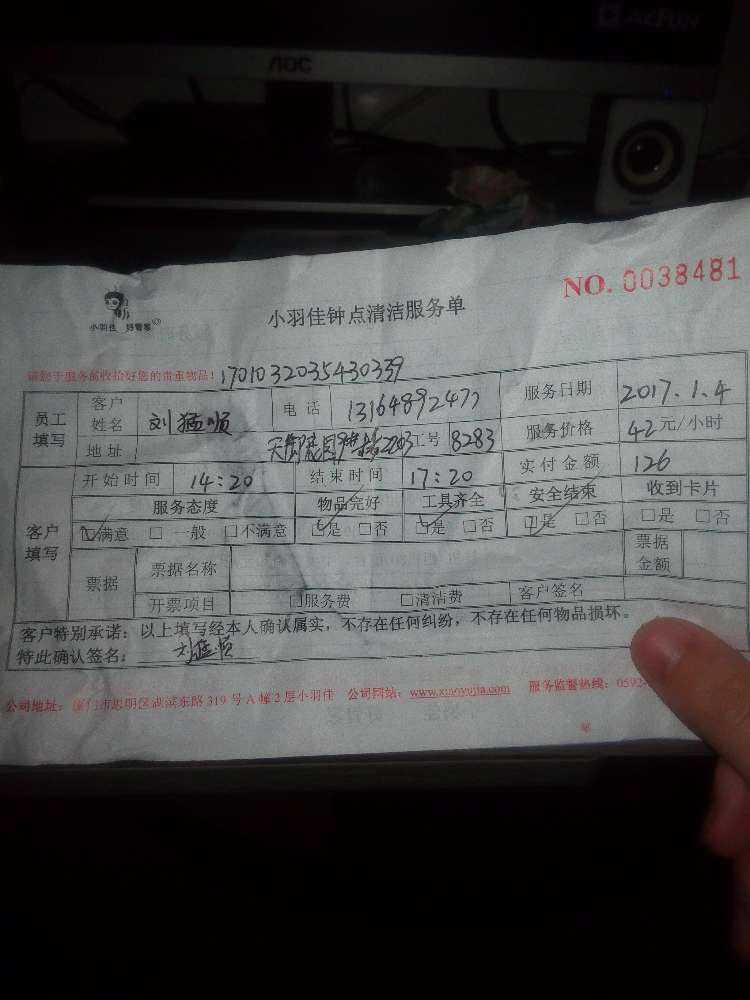 AcFun
AOC
NO. 0038481
小羽佳 好管家
小羽佳钟点清洁服务单
请您于服务前收拾好您的贵重物品! 1701032035430339
员工填写 客户姓名 刘猛顺 电话 13164892477 服务日期 2017.1.4
地址 2203 工号 8283 服务价格 42元/小时
客户填写 开始时间 14:20 结束时间 17:20 实付金额 126
服务态度 物品完好 工具齐全 安全结束 收到卡片
☑满意 □一般 □不满意 ☑是 □否 ☑是 □否 ☑是 □否 □是 □否
票据 票据名称 票据金额
开票项目 □服务费 □清洁费 客户签名
客户特别承诺:以上填写经本人确认属实,不存在任何纠纷,不存在任何物品损坏。
特此确认签名: 刘猛顺
公司地址:厦门市思明区湖滨东路319号A幢2层小羽佳 公司网站:www.xiaoyujia.com 服务监督热线:0592-